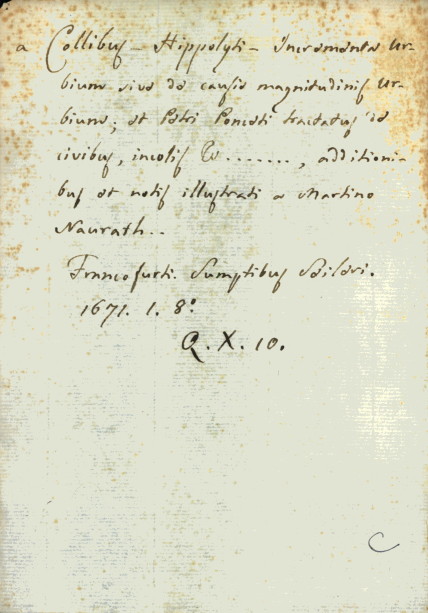 a Collibus - Hippolyti - Incrementa Ur-
bium sive de causis magnitudinis Ur-
bium; et Petri Ponceti tractatus de
civibus, incolis &......., additioni-
bus et notis illustrati a Martino
Naurath..
Francofurti. Sumptibus Seileri.
1671. 1. 8º
Q. X. 10.
C